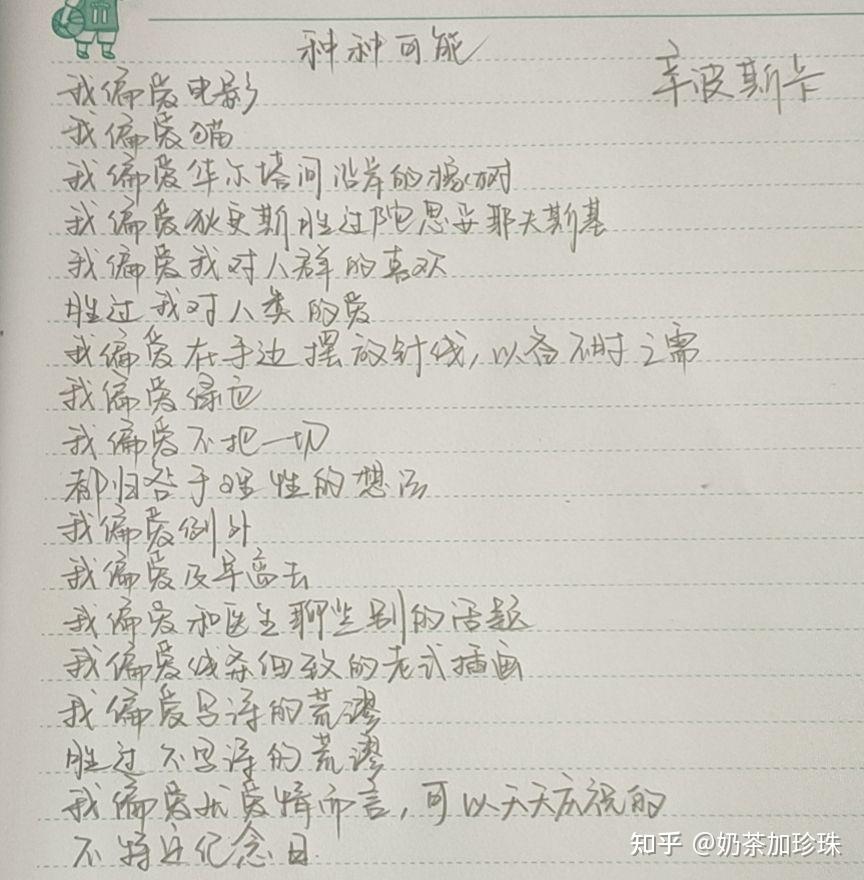 11
种种可能
辛波斯卡
我偏爱电影
我偏爱猫
我偏爱华尔塔河沿岸的橡树
我偏爱狄更斯胜过陀思妥耶夫斯基
我偏爱我对人群的喜欢
胜过我对人类的爱
我偏爱在手边摆放针线,以备不时之需
我偏爱绿色
我偏爱不把一切
都归咎于理性的想法
我偏爱例外
我偏爱及早离去
我偏爱和医生聊些别的话题
我偏爱线条细致的老式插画
我偏爱写诗的荒谬
胜过不写诗的荒谬
我偏爱就爱情而言,可以天天庆祝的
不特定纪念日
知乎 @奶茶加珍珠